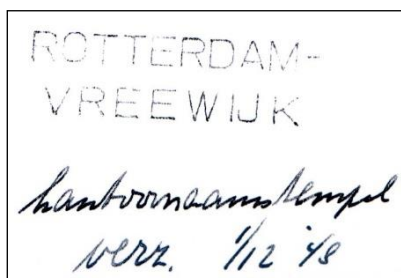 ROTTERDAM-
VREEWIJK
kantoornaamstempel
verz. 1/12 '48